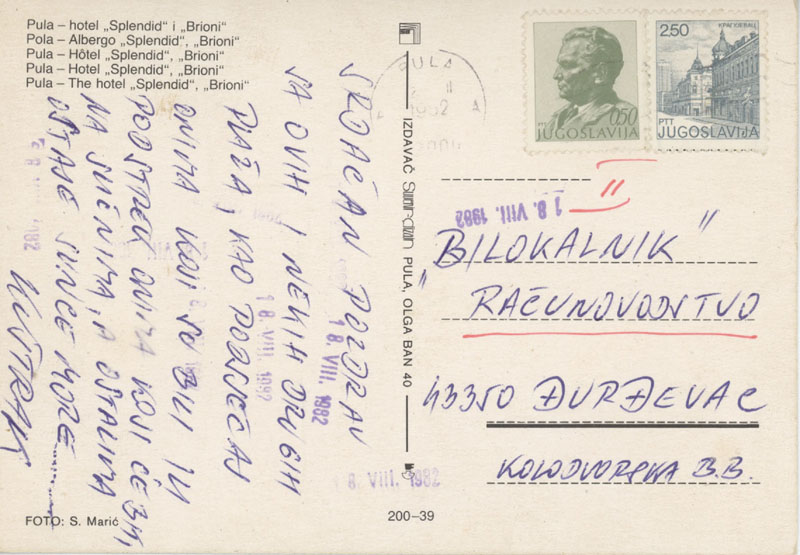 Pula – hotel „Splendid“ i „Brioni“
Pola – Albergo „Splendid“, „Brioni“
Pula – Hôtel „Splendid“, „Brioni“
Pula – Hotel „Splendid“, „Brioni“
Pula – The hotel „Splendid“, „Brioni“
SRDAČAN POZDRAV
SA OVIH I NEKIH DRUGIH
PLAŽA, KAO PODSJEĆAJ
ONIMA KOJI SU BILI I
PODSTREK ONIMA KOJI ĆE BITI,
NA SUČNIMA, A OSTALIMA
OSTAJE SUNCE MORE
FOTO: S. Marić
IZDAVAČ PULA, OLGA BAN 40
200-39
PULA
1982
0,50
PTT
JUGOSLAVIJA
2,50
KRAGUJEVAC
PTT
JUGOSLAVIJA
II
18. VIII. 1982
"BILOKALNIK"
RAČUNOVODSTVO
43350 ĐURĐEVAC
KOLODVORSKA B.B.
18. VIII. 1982
18. VIII. 1982
8. VIII. 1982